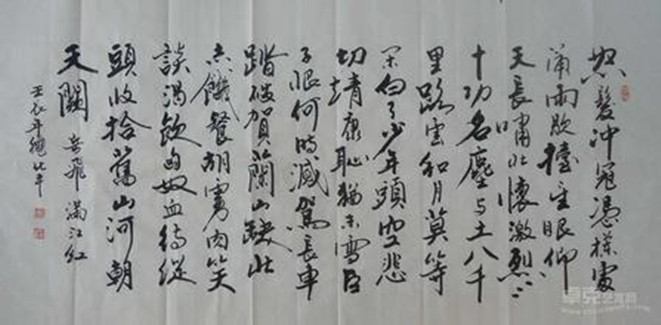 怒髮冲冠憑欄處
瀟雨歇擡望眼仰
天長嘯壯懷激烈三
十功名塵与土八千
里路雲和月莫等
闲白了少年頭空悲
切靖康恥猶未雪臣
子恨何時滅駕長車
踏破賀蘭山缺壯
志饑餐胡虜肉笑
談渴飲匈奴血待從
頭收拾舊山河朝
天闕 岳飛 滿江紅
卓克艺术网